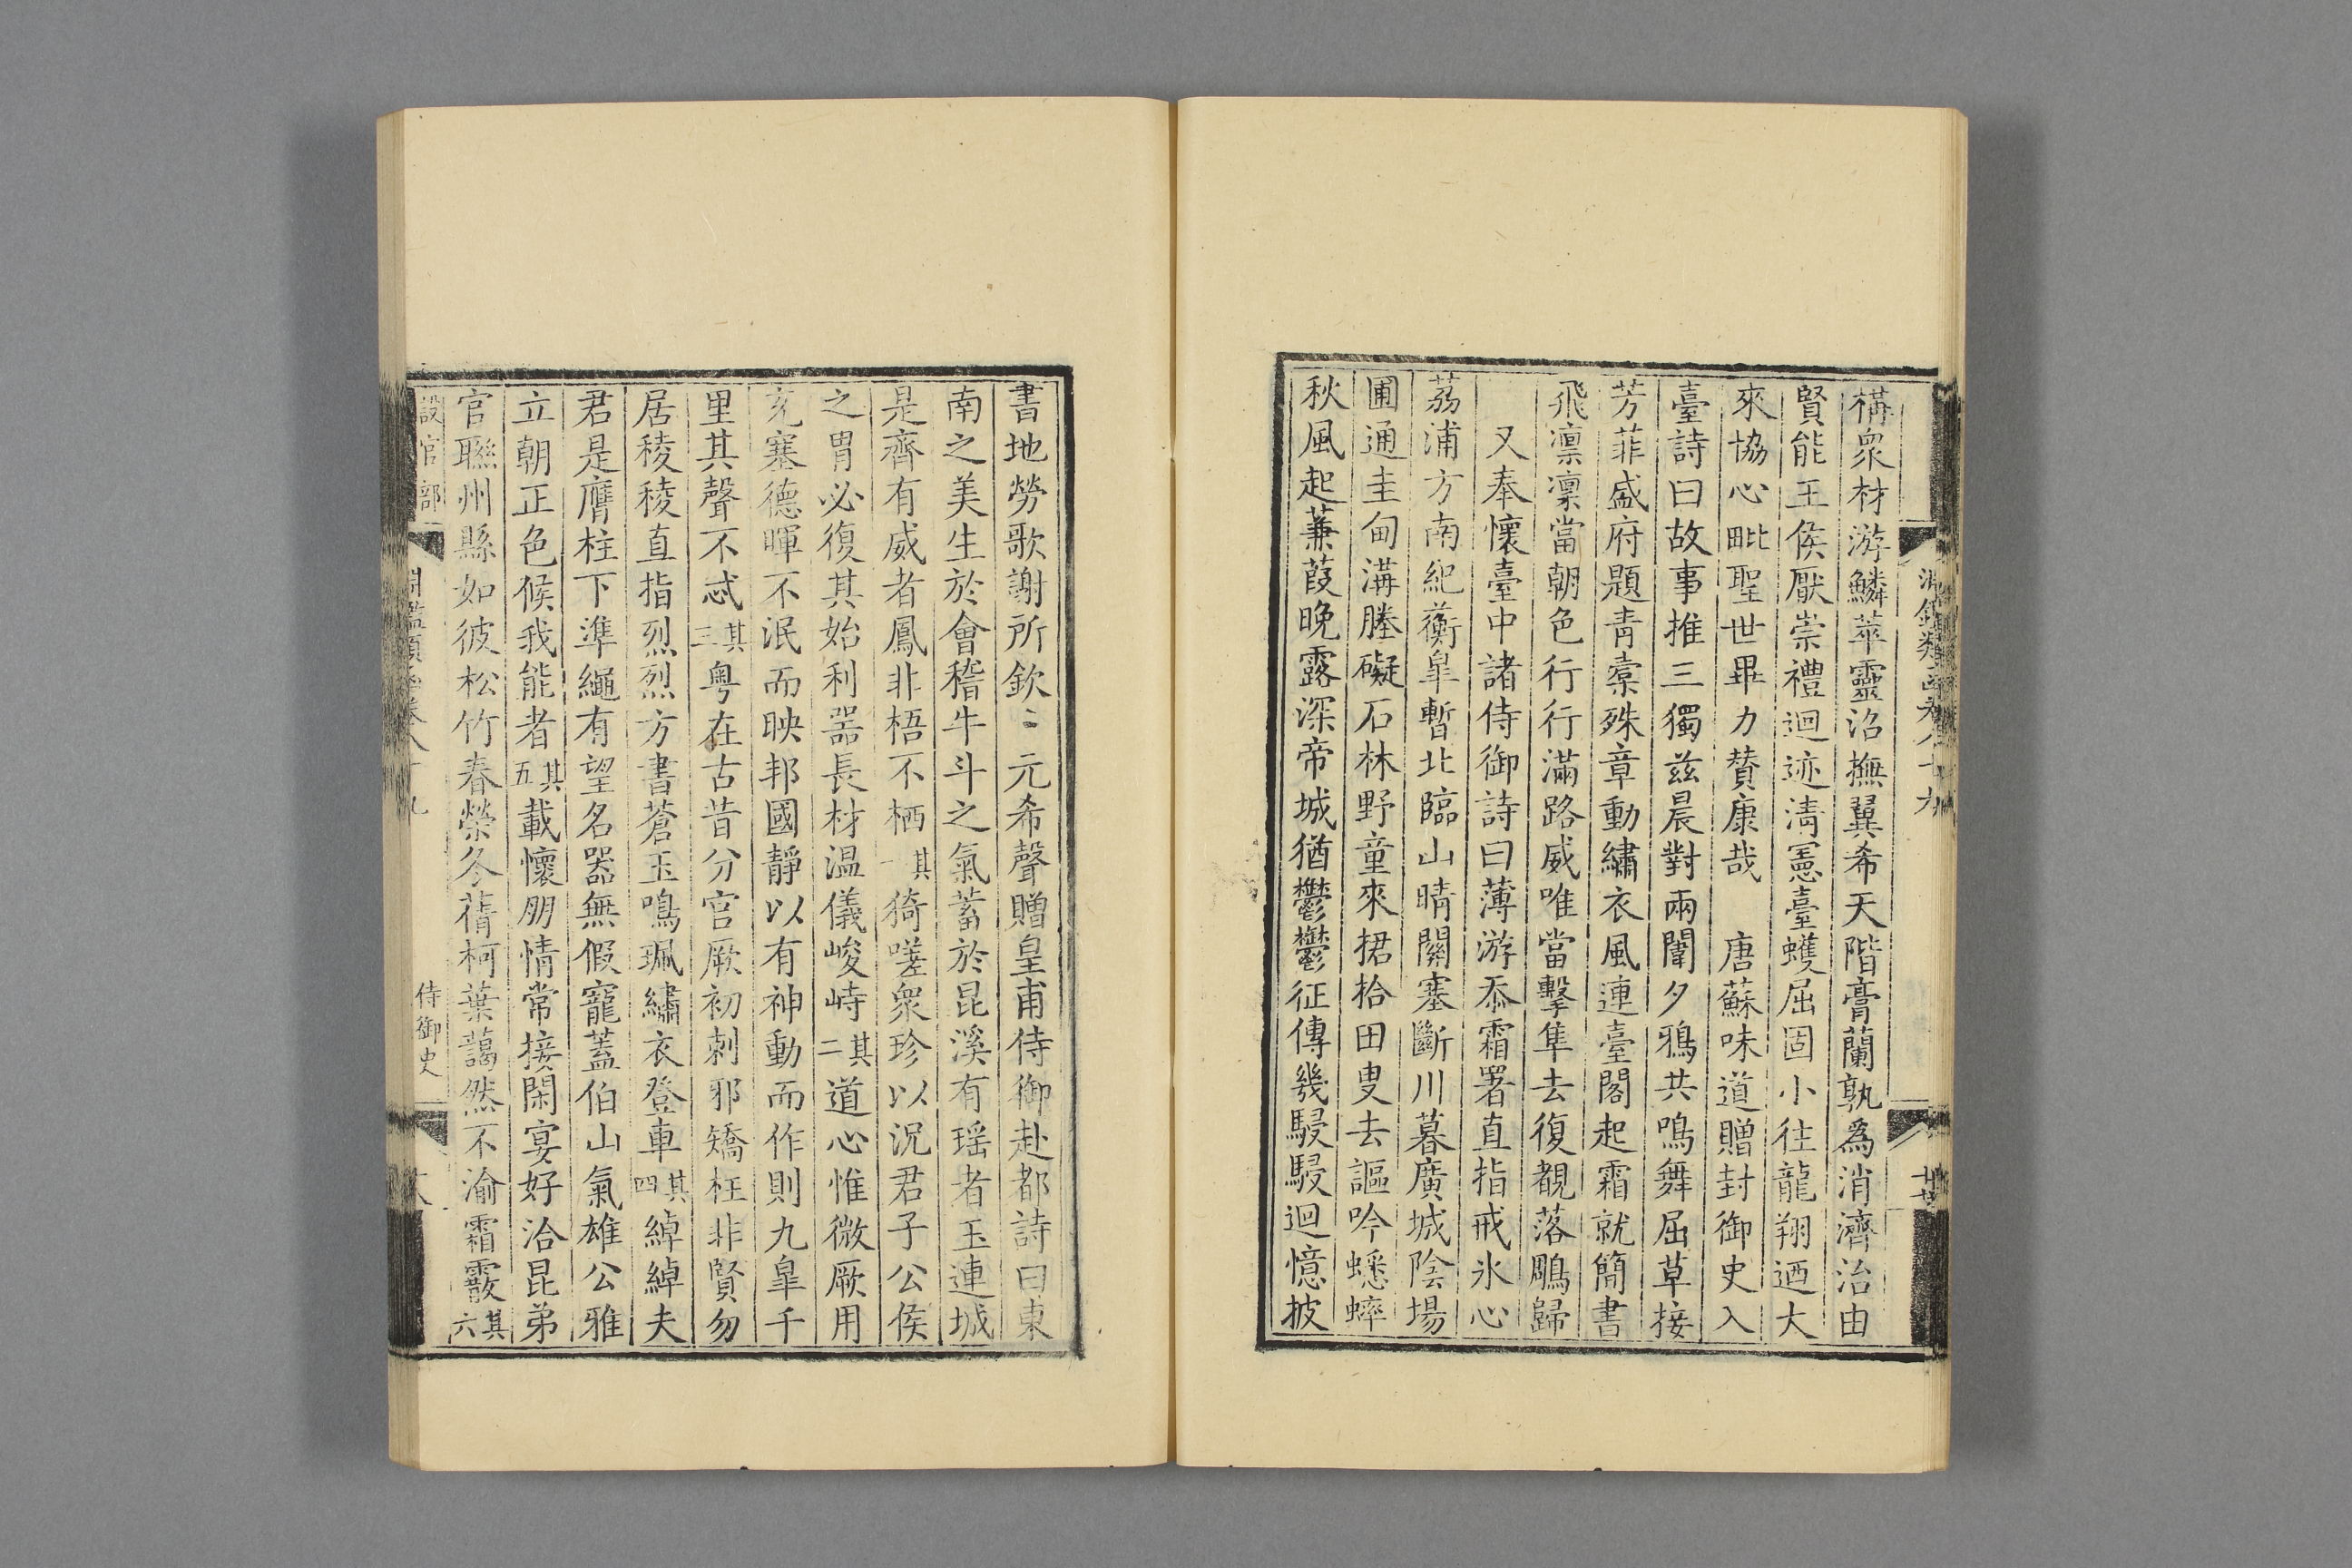 構衆材游鱗萃靈沼撫翼希天階膏蘭孰爲消濟治由
賢能王侯厭崇禮迴迹淸憲臺蠖屈固小往龍翔迺大
來協心毗聖世畢力賛康哉　唐蘇味道贈封御史入
臺詩曰故事推三獨兹晨對兩闈夕鴉共鳴舞屈草接
芳菲盛府題青槖殊章動繡衣風連臺閣起霜就簡書
飛凛凛當朝色行行滿路威唯當擊隼去復覩落鵰歸
又奉懷臺中諸侍御詩曰薄游忝霜署直指戒氷心
荔浦方南紀蘅臯暫北臨山晴關塞斷川暮廣城陰場
圃通圭甸溝塍礙石林野童來捃拾田叟去謳吟蟋蟀
秋風起蒹葭晚露深帝城猶鬱鬱征傳幾駸駸迴憶披
書地勞歌謝所欽二元希聲贈皇甫侍御赴都詩曰東
南之美生於會稽牛斗之氣蓄於昆溪有瑶者玉連城
是齊有威者鳳非梧不栖其一猗嗟衆珍以況君子公侯
之胄必復其始利器長材温儀峻峙其二道心惟微厥用
充塞德暉不泯而映邦國靜以有神動而作則九臯千
里其聲不忒其三粤在古昔分官厥初刺邪矯枉非賢勿
居稜稜直指烈烈方書蒼玉鳴珮繡衣登車其四綽綽夫
君是膺柱下準繩有望名器無假寵蓋伯山氣雄公雅
立朝正色候我能者其五載懷朋情常接閑宴好洽昆弟
官聯州縣如彼松竹春榮冬蒨柯葉藹然不渝霜霰其六
設官部
侍御史